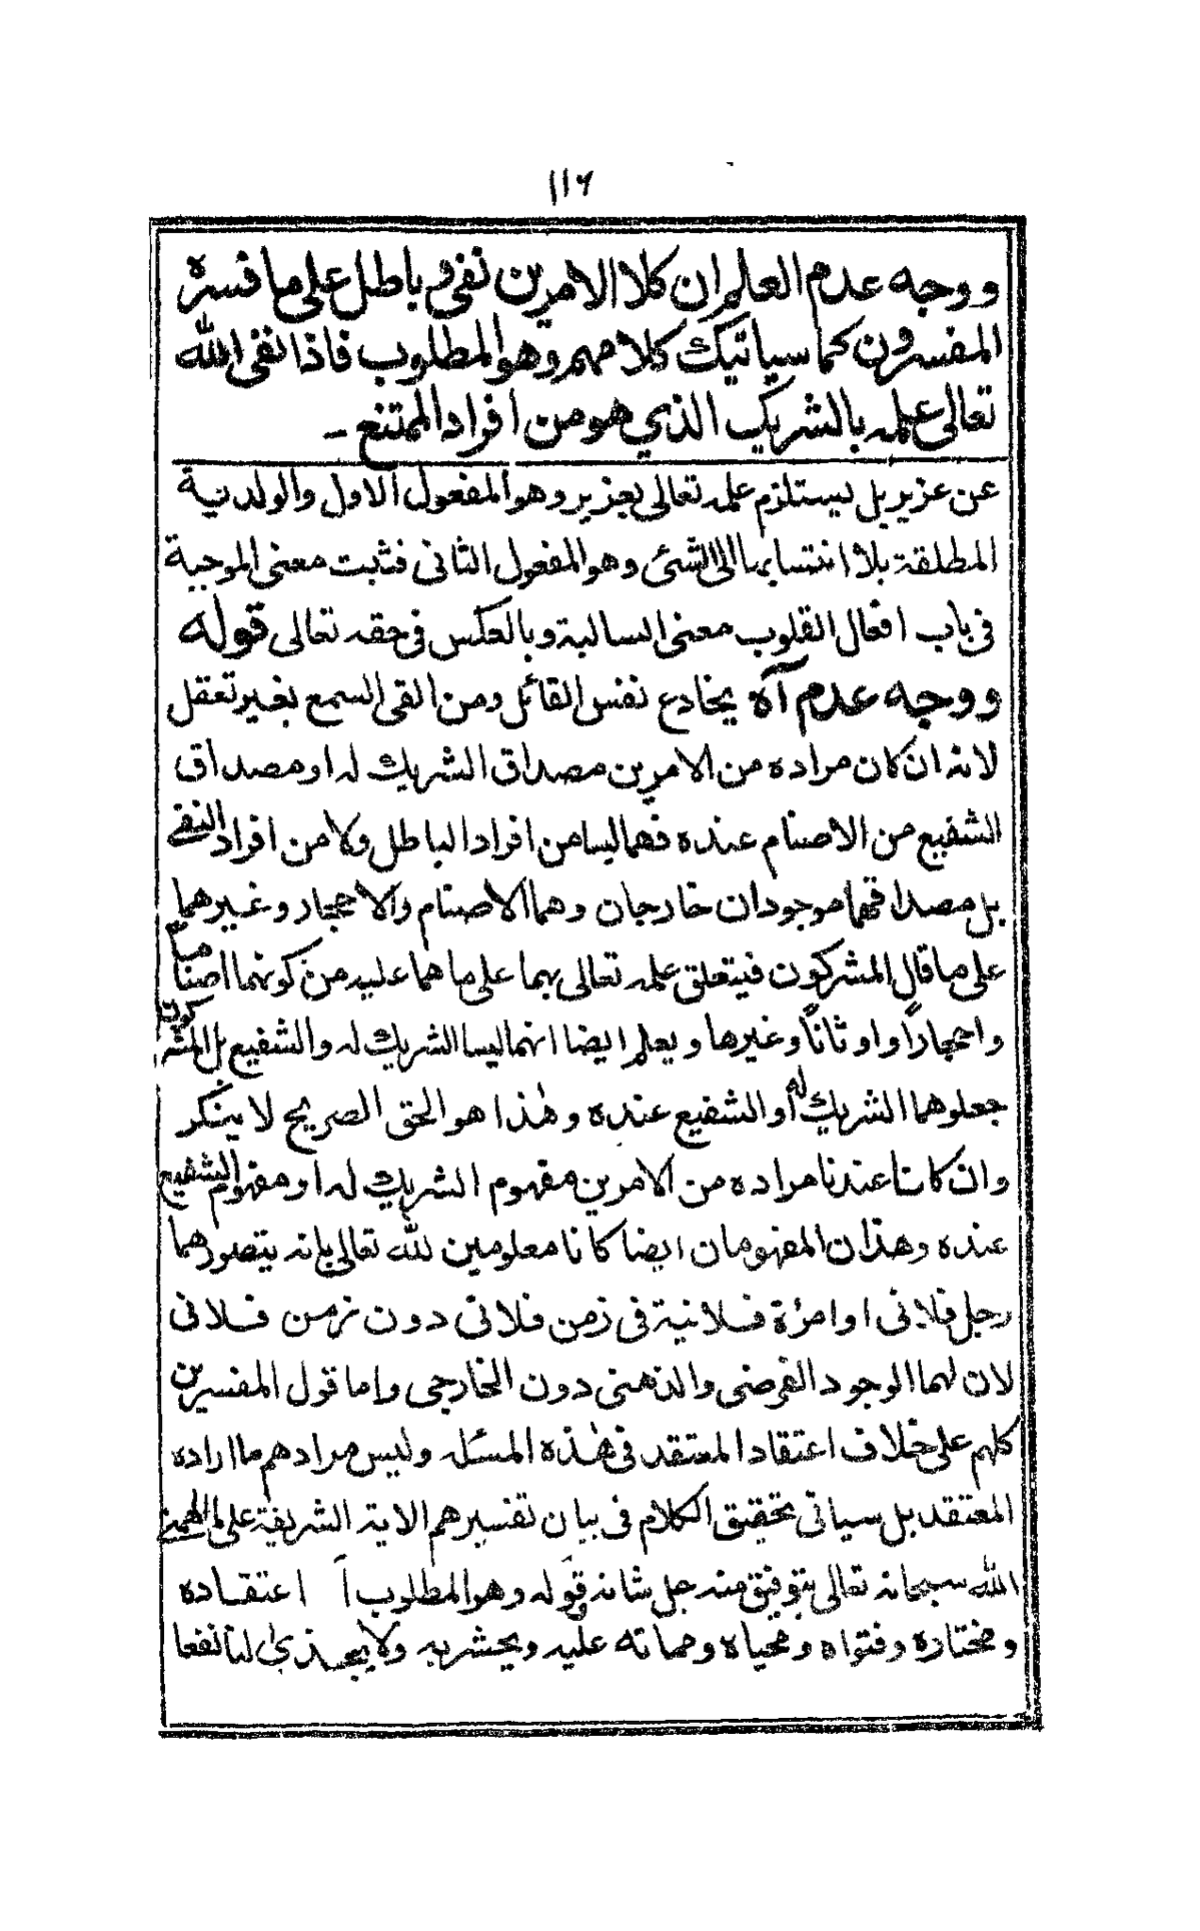 ١١٦
ووجه عدم العلم ان كلا الامرين نفى وباطل على ما فسره
المفسرون كما سياتيك كلامهم وهو المطلوب فاذا نفى الله
تعالى علمه بالشريك الذي هو من افراد الممتنع ـ
عن عزير بل يستلزم علمه تعالى بعزير وهو المفعول الاول والولدنية
المطلقة بلا انتسابها الى الشئ وهو المفعول الثانى فثبت معنى الموجبة
فى باب افعال القلوب معنى السالبة وبالعكس فى حقه تعالى قوله
ووجه عدم آه يخادع نفس القائل ومن القى السمع بغير تعقل
لانه ان كان مراده من الامرين مصداق الشريك له او مصداق
الشفيع من الاصنام عنده فهما ليسا من افراد الباطل ولا من افراد النفى
بل مصداقهما موجودان خارجان وهما الاصنام والاحجار وغيرهما
على ما قال المشركون فيتعلق علمه تعالى بهما على ما هما عليه من كونهما اصناما
واحجاراً واوثاناً وغيرها ويعلم ايضا انهما ليسا الشريك له والشفيع بل المشركون
جعلوهما الشريك له او الشفيع عنده وهٰذا هو الحق الصريح لا ينكر
وان كانا عندنا مراده من الامرين مفهوم الشريك له او مفهوم الشفيع
عنده وهذان المفهومان ايضا كانا معلومين لله تعالى بانه يتصورهما
رجل فلانى او امرؤة فلانية فى زمن فلانى دون زمن فلانى
لان لهما الوجود الفرضى والذهنى دون الخارجى واما قول المفسرين
كلهم على خلاف اعتقاد المعتقد فى هٰذه المسئله وليس مرادهم ما اراده
المعتقد بل سياتى تحقيق الكلام فى بيان تفسيرهم الاية الشريفة على ما الهمنى
الله سبحانه تعالى بتوفيق منه جل شانه قوله وهو المطلوب اَ اعتقاده
ومختاره وفتواه ومحياه ومماته عليه ويحشر به ولا يجذى لنا نفعا